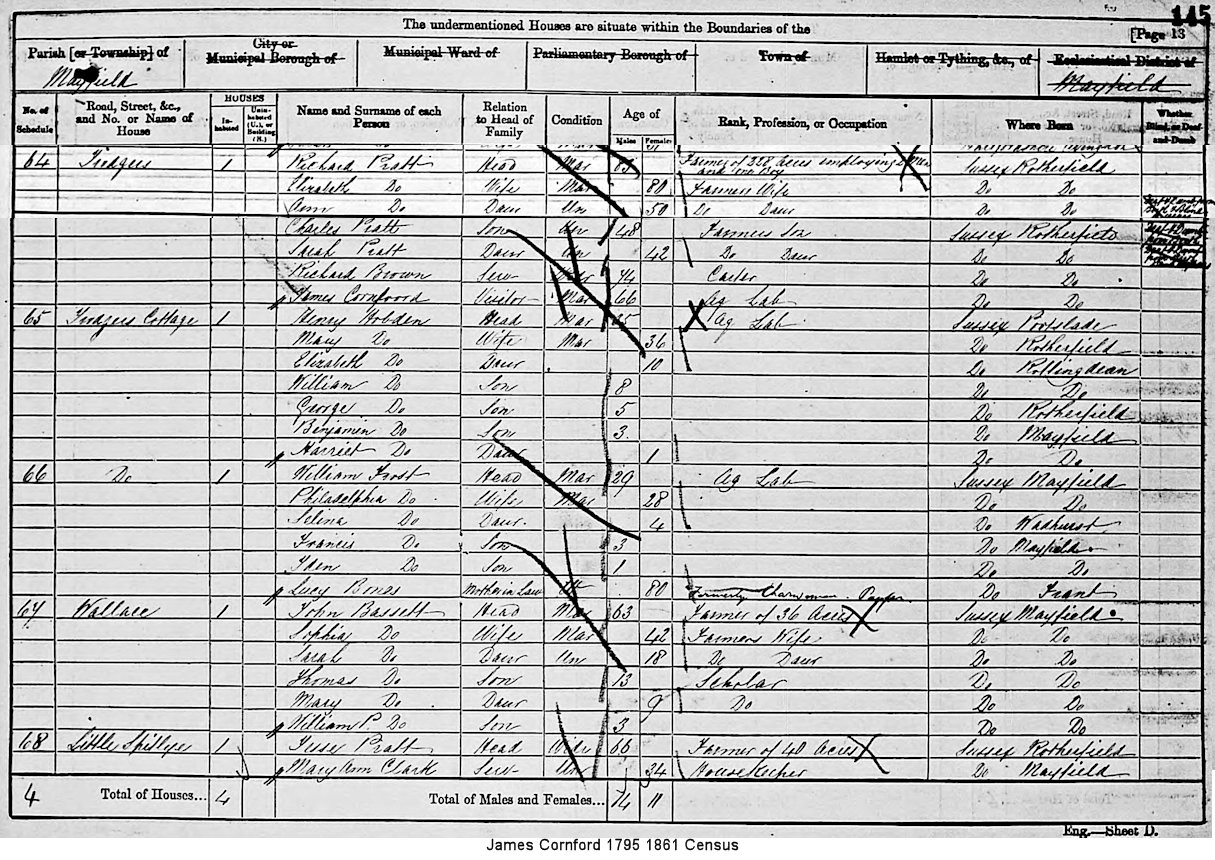 145
The undermentioned Houses are situate within the Boundaries of the
[Page 13
Parish [or Township] of
City or Municipal Borough of
Municipal Ward of
Parliamentary Borough of
Town of
Hamlet or Tything, &c., of
Ecclesiastical District of
Mayfield
Mayfield
No. of Schedule
Road, Street, &c., and No. or Name of House
HOUSES
Inhabited
Uninhabited (U.), or Building (B.)
Name and Surname of each Person
Relation to Head of Family
Condition
Age of
Males
Females
Rank, Profession, or Occupation
Where Born
Whether Blind, or Deaf-and-Dumb
64 1 Richard Pratt Head Mar Farmer of 228 Acres employing and one Boy Sussex Rotherfield
Elizabeth Do Wife Mar 80 Farmers Wife Do Do
Ann Do Daur Un 50 Do Daur Do Do
Charles Pratt Son Un 48 Farmers Son Sussex Rotherfield
Sarah Pratt Daur Un 42 Do Daur Do Do
Richard Brown Serv Carter Do Do
James Cornfoord Visitor Mar 66 Ag Lab Do Do
65 Cottage 1 Henry Hobden Head Mar Ag Lab Sussex Portslade
Mary Do Wife Mar 36 Do Rotherfield
Elizabeth Do Daur 10 Do Rottingdean
William Do Son 8 Do Do
George Do Son 5 Do Rotherfield
Benjamin Do Son 3 Do Mayfield
Harriet Do Daur 1 Do Do
66 Do 1 William Frost Head Mar 29 Ag Lab Sussex Mayfield
Philadelphia Do Wife Mar 28 Do Do
Selina Do Daur 4 Do Wadhurst
Francis Do Son 3 Do Mayfield
Iden Do Son 1 Do Do
Lucy Bones Mother in Law 80 Formerly Charwoman Do Frant
67 Wallace 1 John Bassett Head Mar 63 Farmer of 36 Acres Sussex Mayfield
Sophia Do Wife Mar 42 Farmers Wife Do Do
Sarah Do Daur Un 18 Do Daur Do Do
Thomas Do Son 13 Scholar Do Do
Mary Do Daur 9 Do Do Do
William P Do Son 3 Do Do
68 Little 1 Pratt Head Widr 66 Farmer of 40 Acres Sussex Rotherfield
Mary Ann Clark Serv Un 34 Housekeeper Do Mayfield
4 Total of Houses... 4 Total of Males and Females... 14 11
Eng.—Sheet D.
James Cornford 1795 1861 Census